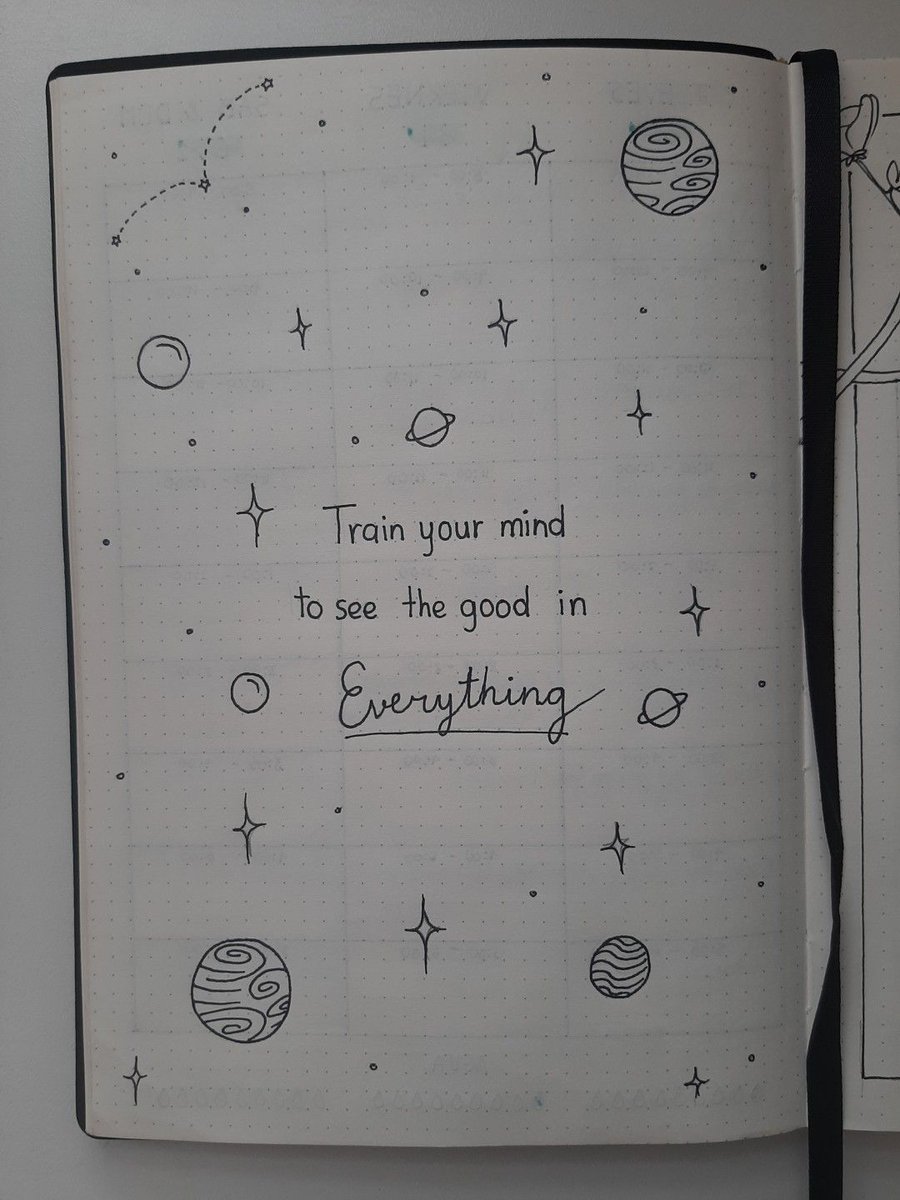 Train your mind
to see the good in
Everything